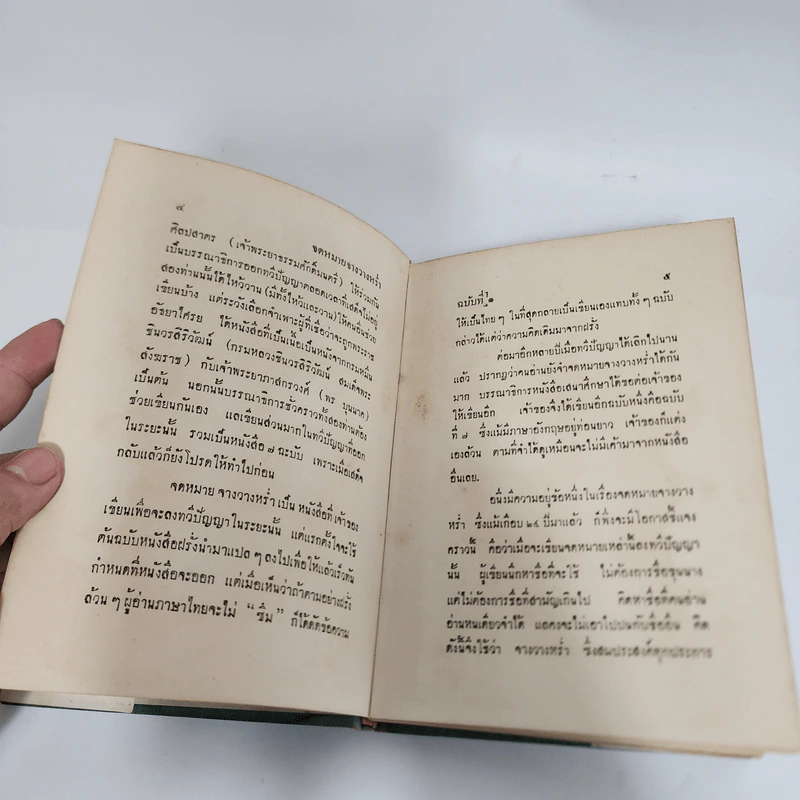 ๔
จดหมายจางวางหร่ำ
ศิลปสาตร (เจ้าพระยาธรรมศักดิ์มนตรี) ให้ร่วมกัน
เป็นบรรณาธิการออกทวีปัญญาตลอดเวลาที่เสด็จไม่อยู่
สองท่านนั้นได้ไหว้วาน (มีทั้งไหว้และวาน) ให้คนอื่นช่วย
เขียนบ้าง แต่ระวังเลือกจำเพาะผู้ที่เชื่อว่าจะถูกพระราช
อัธยาไศรย ได้หนังสือที่เป็นเนื้อเป็นหนังจากกรมหมื่น
ชินวรสิริวัฒน์ (กรมหลวงชินวรสิริวัฒน์ สมเด็จพระ
สังฆราช) กับเจ้าพระยาภาสกรวงศ์ (พร บุนนาค)
เป็นต้น นอกนั้นบรรณาธิการชั่วคราวทั้งสองท่านต้อง
ช่วยเขียนกันเอง แลเขียนส่วนมากในทวีปัญญาที่ออก
ในระยะนั้น รวมเป็นหนังสือ ๗ ฉะบับ เพราะเมื่อเสด็จ
กลับแล้วก็ยังโปรดให้ทำไปก่อน
จดหมายจางวางหร่ำเป็นหนังสือที่เจ้าของ
เขียนเพื่อจะลงทวีปัญญาในระยะนั้น แต่แรกตั้งใจจะใช้
ต้นฉบับหนังสือฝรั่งนำมาแปลๆ ลงไปเพื่อให้แล้วเร็วทัน
กำหนดที่หนังสือจะออก แต่เมื่อเห็นว่าถ้าตามอย่างฝรั่ง
ล้วนๆ ผู้อ่านภาษาไทยจะไม่ “ซึม” ก็ได้ดัดข้อความ
ฉบับที่ ๑
๕
ให้เป็นไทยๆ ในที่สุดกลายเป็นเขียนเองแทบทั้งๆ ฉบับ
กล่าวได้แต่ว่าความคิดเดิมมาจากฝรั่ง
ต่อมาอีกหลายปีเมื่อทวีปัญญาได้เลิกไปนาน
แล้ว ปรากฏว่าคนอ่านยังจำจดหมายจางวางหร่ำได้กัน
มาก บรรณาธิการหนังสือเสนาศึกษาได้ขอต่อเจ้าของ
ให้เขียนอีก เจ้าของจึงได้เขียนอีกฉบับหนึ่งคือฉบับ
ที่ ๗ ซึ่งแม้มีภาษาอังกฤษอยู่ท่อนยาว เจ้าของก็แต่ง
เองล้วน ตามที่จำได้ดูเหมือนจะไม่มีเค้ามาจากหนังสือ
อื่นเลย.
อนึ่งมีความอยู่ข้อหนึ่งในเรื่องจดหมายจางวาง
หร่ำ ซึ่งแม้เกือบ ๒๕ ปีมาแล้ว ก็พึ่งจะมีโอกาสชี้แจง
คราวนี้ คือว่าเมื่อจะเขียนจดหมายเหล่านี้ลงทวีปัญญา
นั้น ผู้เขียนนึกหาชื่อที่จะใช้ ไม่ต้องการชื่อขุนนาง
แต่ไม่ต้องการชื่อที่สามัญเกินไป คิดหาชื่อที่คนอ่าน
อ่านหนเดียวจำได้ แลคงจะไม่เอาไปปนกับชื่ออื่น คิด
ดังนี้จึงใช้ว่า จางวางหร่ำ ซึ่งสมประสงค์ทุกประการ